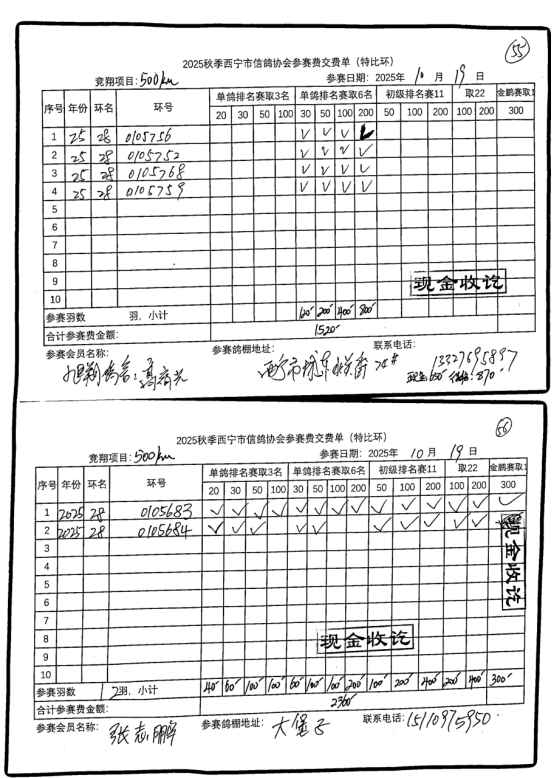 55
2025秋季西宁市信鸽协会参赛费交费单（特比环）
竞翔项目：500km 参赛日期：2025年 10 月 19 日
序号 年份 环名 环号 单鸽排名赛取3名 单鸽排名赛取6名 初级排名赛11 取22 金鹏赛取1
20 30 50 100 30 50 100 200 50 100 200 100 200 300
1 25 28 0105756 √ √ √ √
2 25 28 0105752 √ √ √ √
3 25 28 0105768 √ √ √ √
4 25 28 0105759 √ √ √ √
5
6
7
8
9
现金收讫
10
参赛羽数 羽，小计 120 200 400 800
合计参赛费金额： 1520
参赛会员名称： 参赛鸽棚地址： 联系电话：
西宁市 74# 13327695897
现金650 870
56
2025秋季西宁市信鸽协会参赛费交费单（特比环）
竞翔项目：500km 参赛日期：2025年 10 月 19 日
序号 年份 环名 环号 单鸽排名赛取3名 单鸽排名赛取6名 初级排名赛11 取22 金鹏赛取1
20 30 50 100 30 50 100 200 50 100 200 100 200 300
1 2025 28 0105683 √ √ √ √ √ √ √ √ √ √ √ √ √ √
2 2025 28 0105684 √ √ √ √ √ √ √ √ √ √
现金收讫
3
4
5
6
7
8
9
现金收讫
10
参赛羽数 2羽，小计 40 60 100 100 60 100 100 200 100 200 400 200 400 300
合计参赛费金额： 2360
参赛会员名称：张志鹏 参赛鸽棚地址：大堡子 联系电话：15110975950